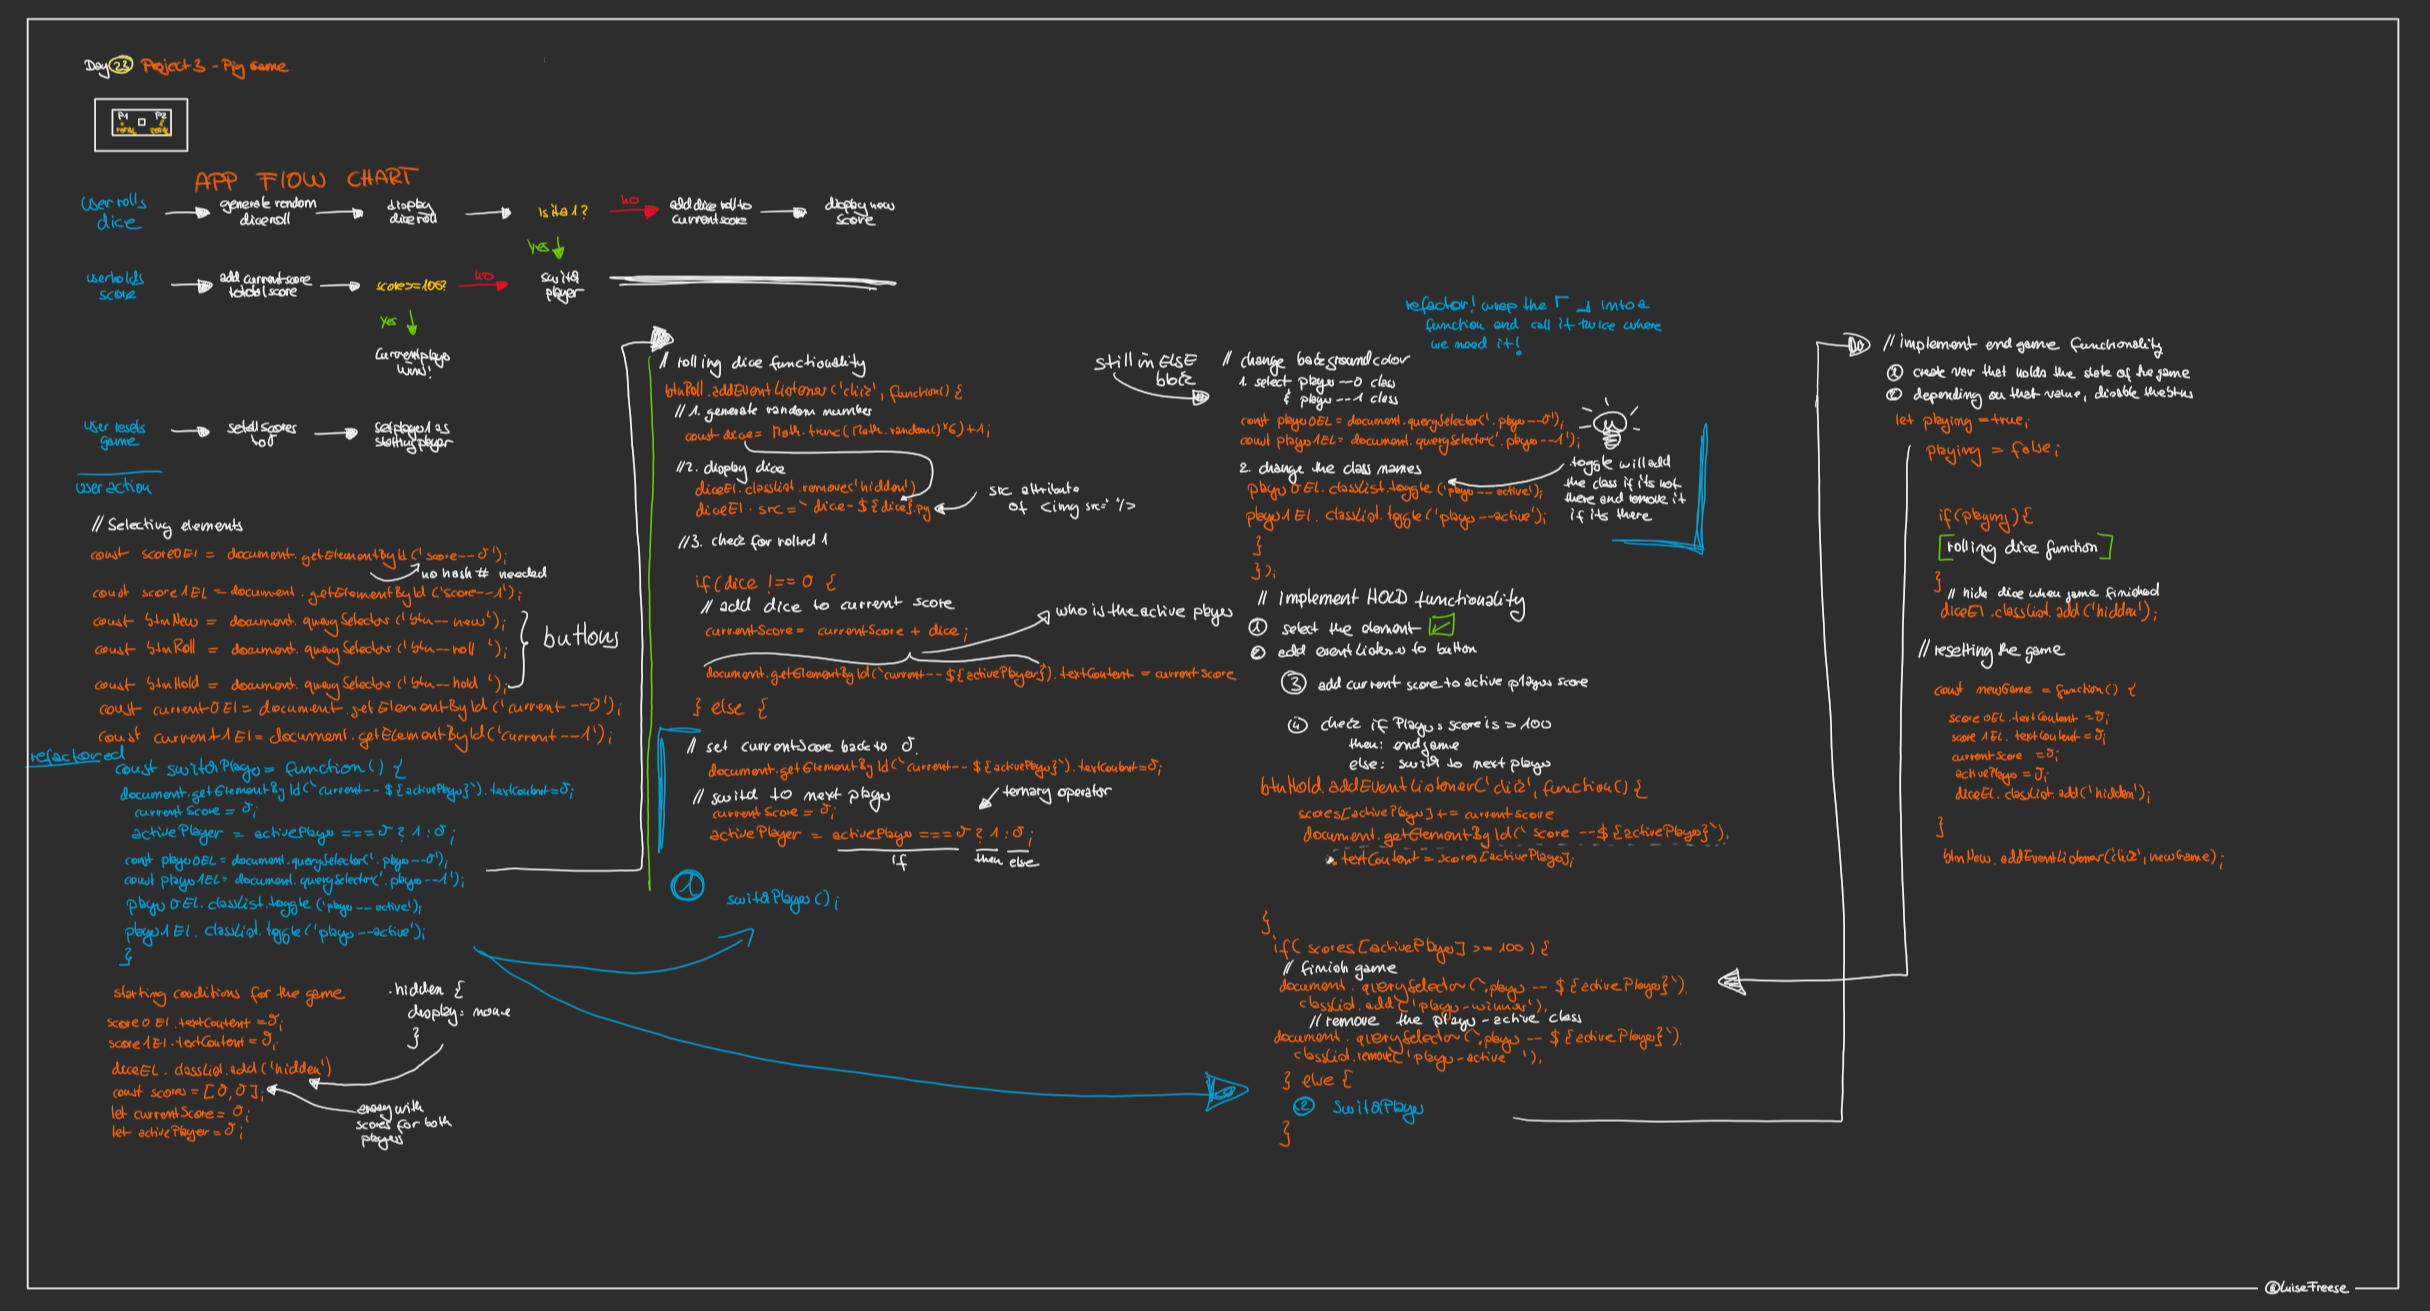 Day 23 Project 3 - Pig Game
P1 P2
APP FLOW CHART
user rolls
dice
generate random
dice roll
display
dice roll
Is it a 1?
no
add dice roll to
current score
display new
score
yes
user holds
score
add current score
to total score
score >= 100?
no
switch
player
yes
Current player
wins!
User resets
game
set all scores
to 0
set player 1 as
starting player
user action
// Selecting elements
const score0El = document.getElementById('score--0');
no hash # needed
const score1EL = document.getElementById('score--1');
const btnNew = document.querySelector('btn--new');
const btnRoll = document.querySelector('btn--roll');
const btnHold = document.querySelector('btn--hold');
buttons
const current0El = document.getElementById('current--0');
const current1El = document.getElementById('current--1');
refactored
const switchPlayer = function() {
document.getElementById(`current--${activePlayer}`).textContent=0;
currentScore = 0;
activePlayer = activePlayer === 0 ? 1 : 0;
const player0EL = document.querySelector('.player--0');
const player1EL = document.querySelector('.player--1');
player0EL.classList.toggle('player--active');
player1El.classList.toggle('player--active');
}
starting conditions for the game
score0El.textContent = 0;
score1El.textContent = 0;
diceEL.classList.add('hidden')
const scores = [0,0];
let currentScore = 0;
let activePlayer = 0;
.hidden {
display: none
}
array with
scores for both
players
// rolling dice functionality
btnRoll.addEventListener('click', function() {
// 1. generate random number
const dice = Math.trunc(Math.random()*6)+1;
//2. display dice
diceEl.classList.remove('hidden')
diceEl.src = `dice-${dice}.png
src attribute
of <img src=" "/>
//3. check for rolled 1
if(dice !== 0 {
// add dice to current score
currentScore = currentScore + dice;
who is the active player
document.getElementById(`current--${activePlayer}).textContent = currentScore
} else {
// set currentScore back to 0
document.getElementById(`current--${activePlayer}`).textContent=0;
// switch to next player
currentScore = 0;
ternary operator
activePlayer = activePlayer === 0 ? 1 : 0;
if then else
1 switchPlayer();
refactor! wrap the into a
function and call it twice where
we need it!
still in ELSE
block
// change background color
1. select player--0 class
& player--1 class
const player0EL = document.querySelector('.player--0');
const player1EL = document.querySelector('.player--1');
2. change the class names
player0EL.classList.toggle('player--active');
player1El.classList.toggle('player--active');
toggle will add
the class if its not
there and remove it
if its there
}
});
// Implement HOLD functionality
1 select the element
2 add eventListener to button
3 add current score to active players score
4 check if Players score is >= 100
then: endgame
else: switch to next player
btnHold.addEventListener('click', function() {
scores[activePlayer] += currentscore
document.getElementById(`score--${activePlayer}`).
textContent = scores[activePlayer];
}
if(scores[activePlayer] >= 100) {
// finish game
document.querySelector(`.player--${activePlayer}`).
classList.add('player-winner');
// remove the player-active class
document.querySelector(`.player--${activePlayer}`).
classList.remove('player-active');
} else {
2 switchPlayer
}
// implement end game functionality
1 create var that holds the state of the game
2 depending on that value, disable
let playing = true;
playing = false;
if(playing) {
[rolling dice function]
}
// hide dice when game finished
diceEl.classList.add('hidden');
// resetting the game
const newGame = function() {
score0EL.textContent = 0;
score1EL.textContent = 0;
currentScore = 0;
activePlayer = 0;
diceEL.classList.add('hidden');
}
btnNew.addEventListener('click', newGame);
@LuiseFreese